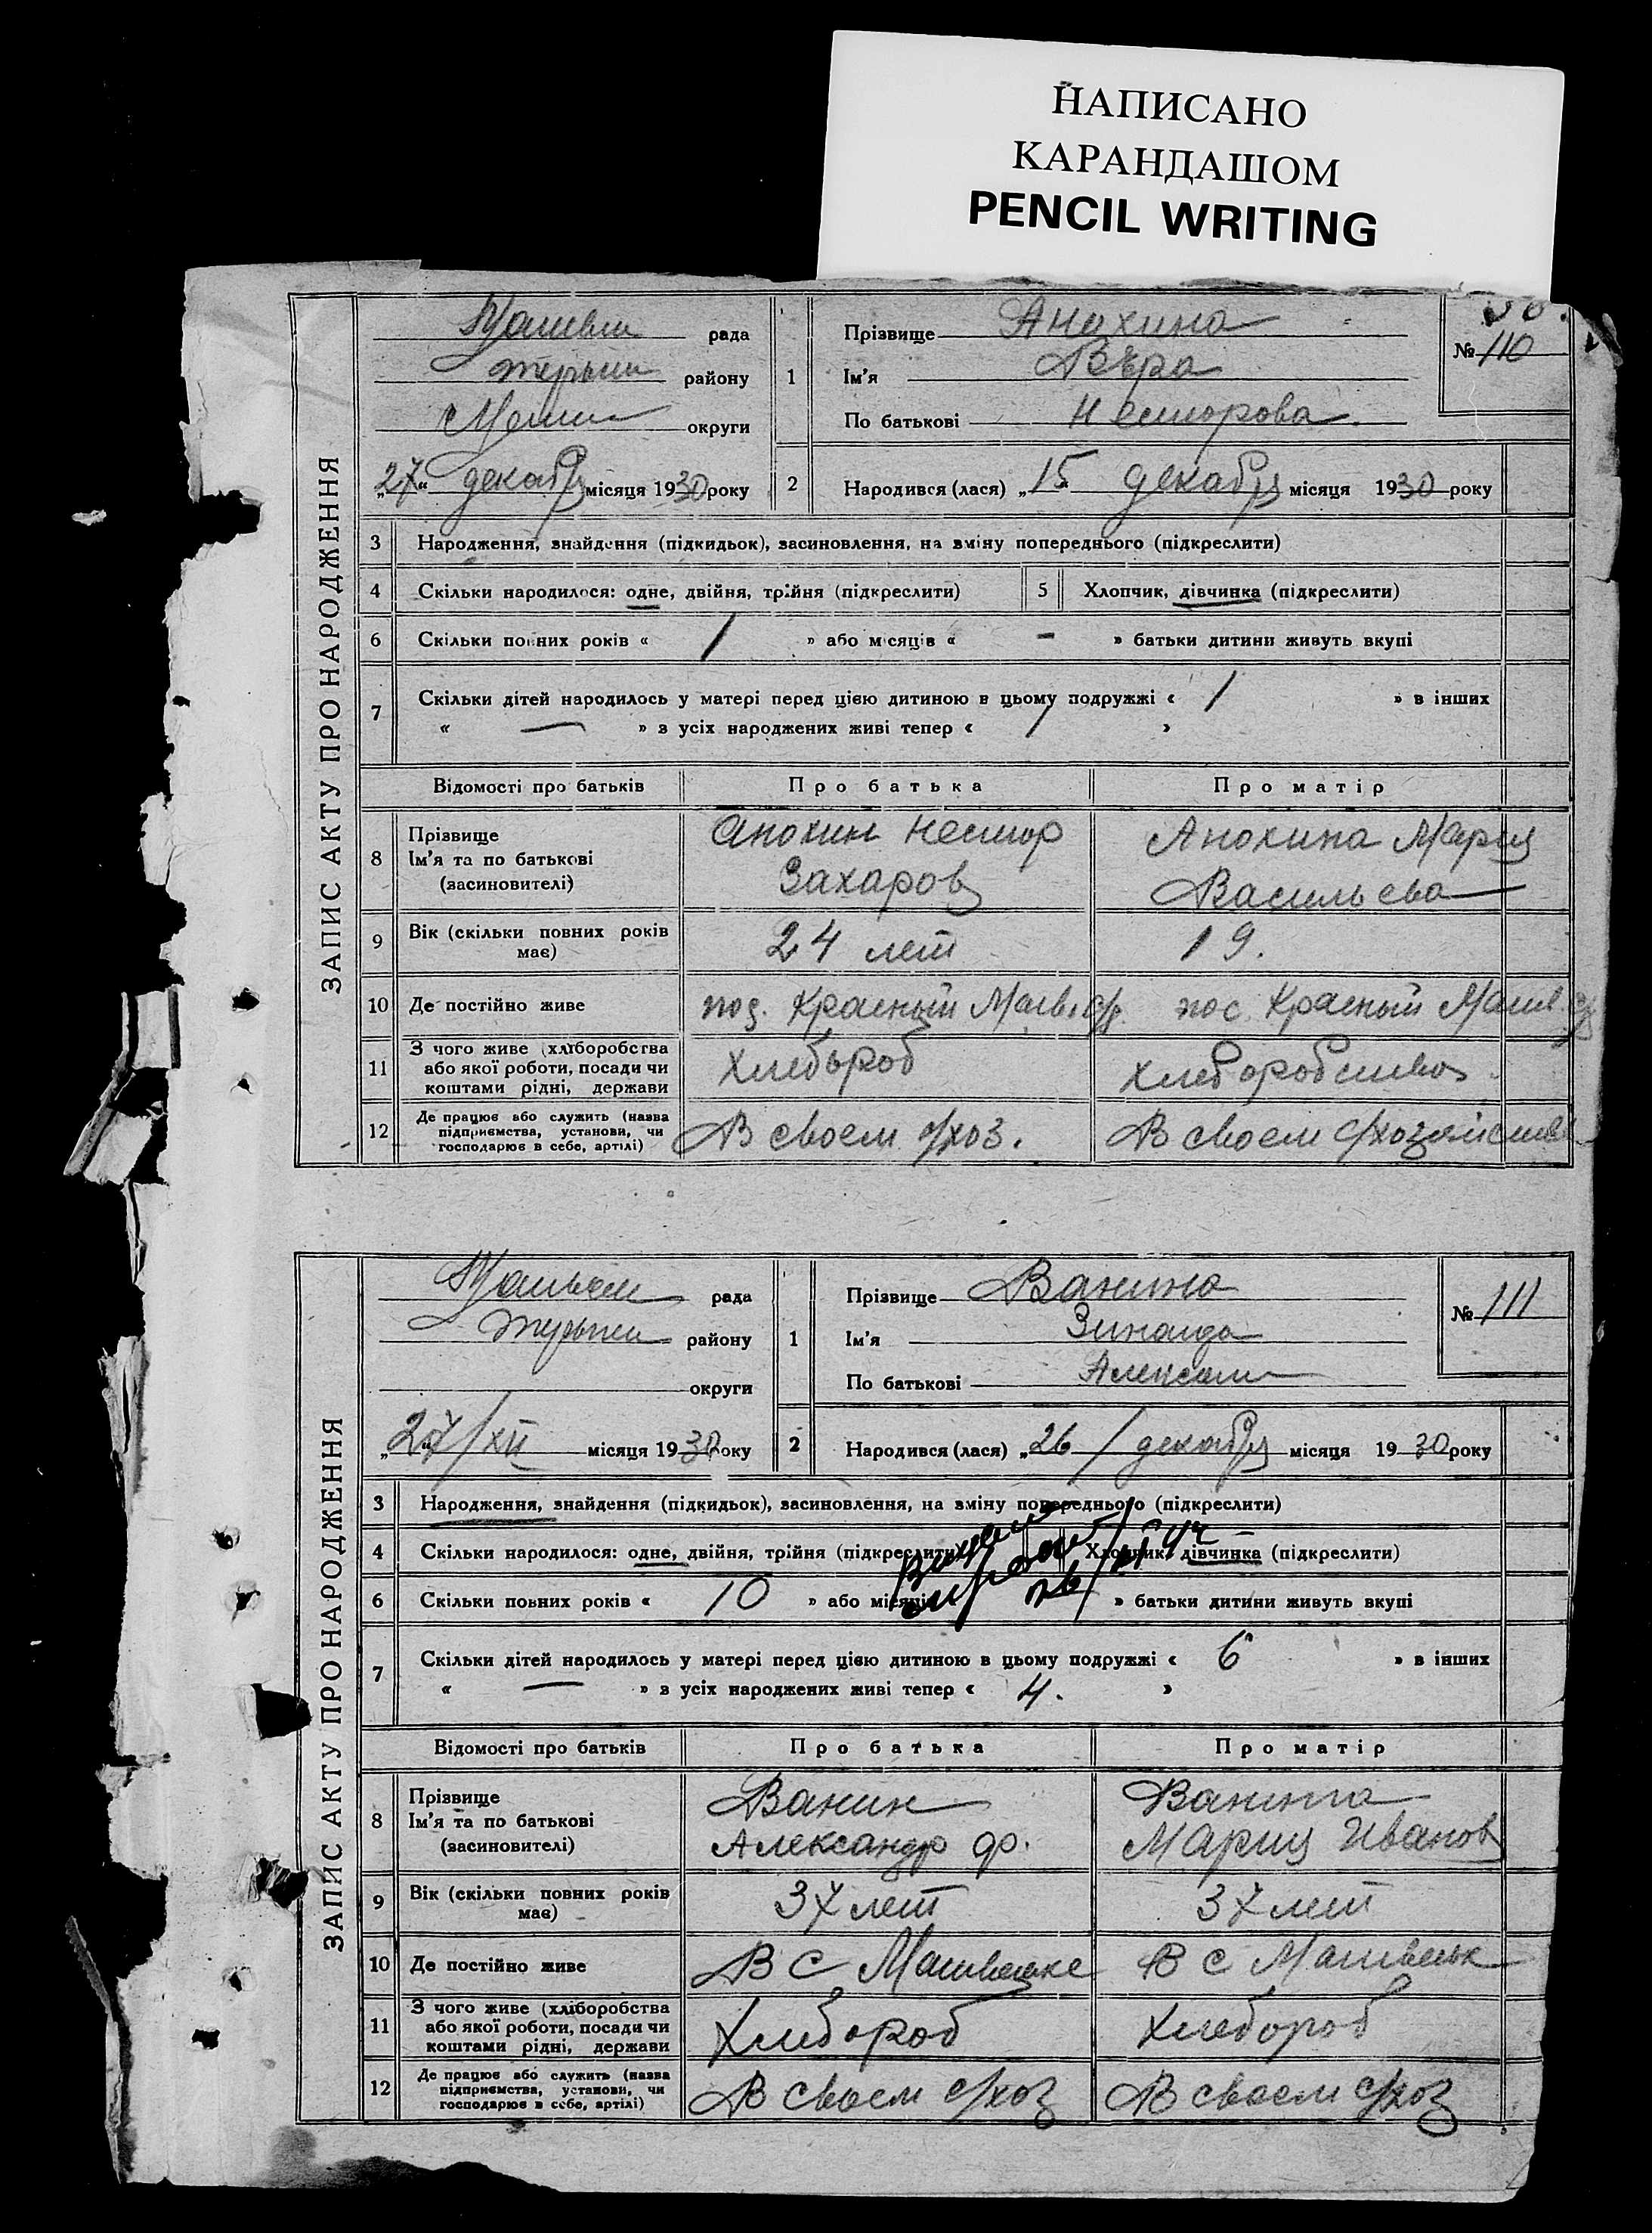 НАПИСАНО
КАРАНДАШОМ
PENCIL WRITING
ЗАПИС АКТУ ПРО НАРОДЖЕННЯ
рада
району
округи
„27“ декабря місяця 1930 року
1
Прізвище Анохина
Ім'я Вѣра
По батькові Несторова
№ 110
2
Народився (лася) „15 декабря місяця 1930 року
3 Народження, знайдення (підкидьок), засиновлення, на зміну попереднього (підкреслити)
4 Скільки народилося: одне, двійня, трійня (підкреслити)
5 Хлопчик, дівчинка (підкреслити)
6 Скільки повних років « 1 » або місяців « - » батьки дитини живуть вкупі
7 Скільки дітей народилось у матері перед цією дитиною в цьому подружжі « 1 » в інших
« — » з усіх народжених живі тепер « 1 »
Відомості про батьків Про батька Про матір
8 Прізвище
Ім'я та по батькові
(засиновителі)
Анохин Нестор
Захаров
Анохина Мария
Васильева
9 Вік (скільки повних років
має)
24 лет
19.
10 Де постійно живе
пос. Красный
пос Красный
11 З чого живе (хліборобства
або якої роботи, посади чи
коштами рідні, держави
Хлебороб
хлеборобство
12 Де працює або служить (назва
підприємства, установи, чи
господарює в себе, артілі)
В своем с/хоз.
В своем с/хозяйстве
ЗАПИС АКТУ ПРО НАРОДЖЕННЯ
рада
району
округи
„27/XII місяця 1930 року
1
Прізвище Ванина
Ім'я Зинаида
По батькові
№ 111
2
Народився (лася) „26/декабря місяця 1930 року
3 Народження, знайдення (підкидьок), засиновлення, на зміну попереднього (підкреслити)
4 Скільки народилося: одне, двійня, трійня (підкреслити)
Хлопчик, дівчинка (підкреслити)
6 Скільки повних років « 10 » або місяців » батьки дитини живуть вкупі
7 Скільки дітей народилось у матері перед цією дитиною в цьому подружжі « 6 » в інших
« — » з усіх народжених живі тепер « 4. »
Відомості про батьків Про батька Про матір
8 Прізвище
Ім'я та по батькові
(засиновителі)
Ванин
Александр Ф.
Ванина
Мария Иванов
9 Вік (скільки повних років
має)
37 лет
37 лет
10 Де постійно живе
В С
В С
11 З чого живе (хліборобства
або якої роботи, посади чи
коштами рідні, держави
Хлебороб
Хлебороб
12 Де працює або служить (назва
підприємства, установи, чи
господарює в себе, артілі)
В своем с/хоз
В своем с/хоз